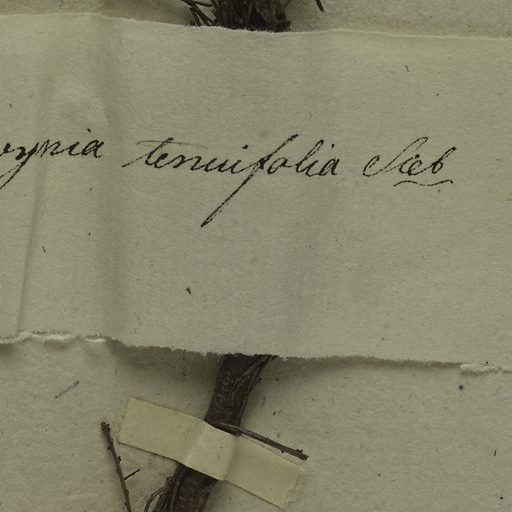 wynia tenuifolia Sieb